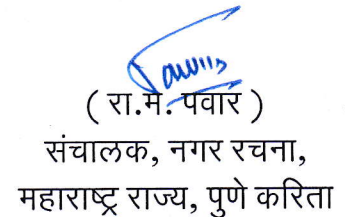 ( रा.म. पवार )
संचालक, नगर रचना,
महाराष्ट्र राज्य, पुणे करिता